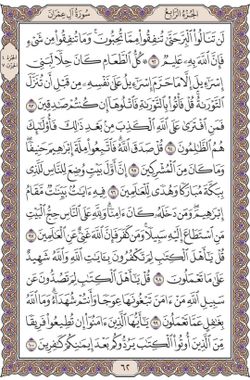 سُورَةُ آلِ عِمْرَانَ الجُزْءُ الرَّابِعُ
لَن تَنَالُوا۟ ٱلْبِرَّ حَتَّىٰ تُنفِقُوا۟ مِمَّا تُحِبُّونَ ۚ وَمَا تُنفِقُوا۟ مِن شَىْءٍ
فَإِنَّ ٱللَّهَ بِهِۦ عَلِيمٌ ٩٢ ۞ كُلُّ ٱلطَّعَامِ كَانَ حِلًّا لِّبَنِىٓ
إِسْرَٰٓءِيلَ إِلَّا مَا حَرَّمَ إِسْرَٰٓءِيلُ عَلَىٰ نَفْسِهِۦ مِن قَبْلِ أَن تُنَزَّلَ
ٱلتَّوْرَىٰةُ ۗ قُلْ فَأْتُوا۟ بِٱلتَّوْرَىٰةِ فَٱتْلُوهَآ إِن كُنتُمْ صَٰدِقِينَ ٩٣
فَمَنِ ٱفْتَرَىٰ عَلَى ٱللَّهِ ٱلْكَذِبَ مِنۢ بَعْدِ ذَٰلِكَ فَأُو۟لَٰٓئِكَ
هُمُ ٱلظَّٰلِمُونَ ٩٤ قُلْ صَدَقَ ٱللَّهُ ۗ فَٱتَّبِعُوا۟ مِلَّةَ إِبْرَٰهِيمَ حَنِيفًا
وَمَا كَانَ مِنَ ٱلْمُشْرِكِينَ ٩٥ إِنَّ أَوَّلَ بَيْتٍ وُضِعَ لِلنَّاسِ لَلَّذِى
بِبَكَّةَ مُبَارَكًا وَهُدًى لِّلْعَٰلَمِينَ ٩٦ فِيهِ ءَايَٰتٌۢ بَيِّنَٰتٌ مَّقَامُ
إِبْرَٰهِيمَ ۖ وَمَن دَخَلَهُۥ كَانَ ءَامِنًا ۗ وَلِلَّهِ عَلَى ٱلنَّاسِ حِجُّ ٱلْبَيْتِ
مَنِ ٱسْتَطَاعَ إِلَيْهِ سَبِيلًا ۚ وَمَن كَفَرَ فَإِنَّ ٱللَّهَ غَنِىٌّ عَنِ ٱلْعَٰلَمِينَ ٩٧
قُلْ يَٰٓأَهْلَ ٱلْكِتَٰبِ لِمَ تَكْفُرُونَ بِـَٔايَٰتِ ٱللَّهِ وَٱللَّهُ شَهِيدٌ
عَلَىٰ مَا تَعْمَلُونَ ٩٨ قُلْ يَٰٓأَهْلَ ٱلْكِتَٰبِ لِمَ تَصُدُّونَ عَن
سَبِيلِ ٱللَّهِ مَنْ ءَامَنَ تَبْغُونَهَا عِوَجًا وَأَنتُمْ شُهَدَآءُ ۗ وَمَا ٱللَّهُ
بِغَٰفِلٍ عَمَّا تَعْمَلُونَ ٩٩ يَٰٓأَيُّهَا ٱلَّذِينَ ءَامَنُوٓا۟ إِن تُطِيعُوا۟ فَرِيقًا
مِّنَ ٱلَّذِينَ أُوتُوا۟ ٱلْكِتَٰبَ يَرُدُّوكُم بَعْدَ إِيمَٰنِكُمْ كَٰفِرِينَ ١٠٠
٦٢